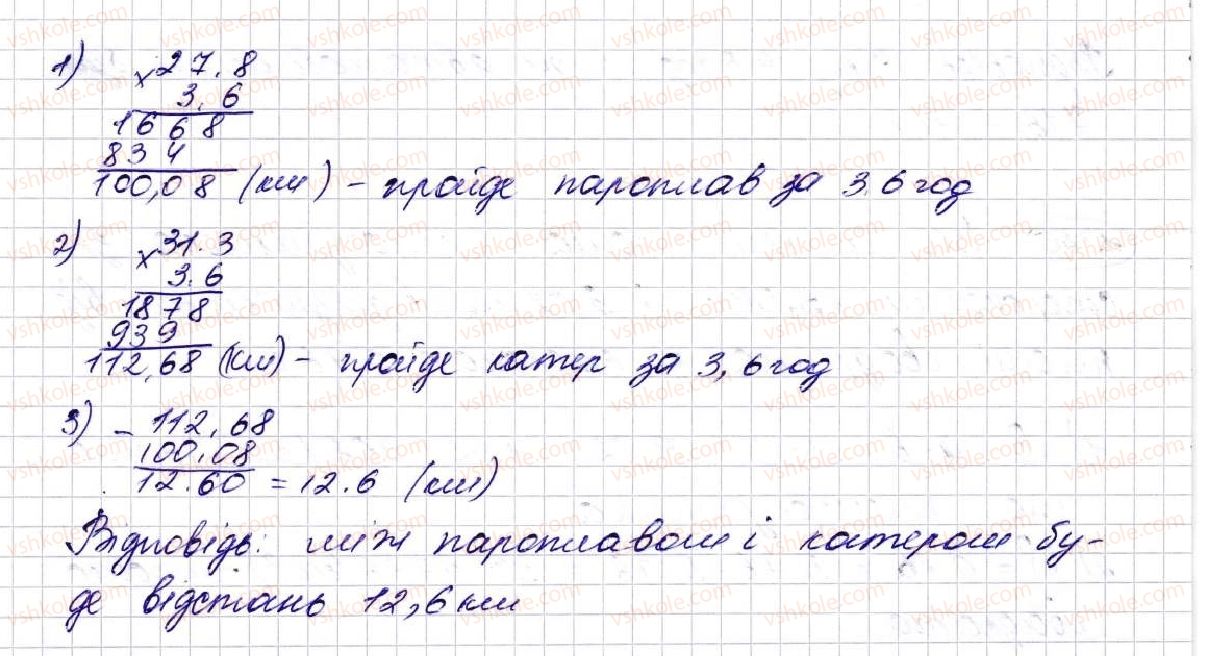 1) × 27.8
3.6
1668
834
100,08 (км) – пройде пароплав за 3.6 год
2) × 31.3
3.6
1878
939
112,68 (км) – пройде катер за 3,6 год
3) – 112,68
100.08
12.60 = 12.6 (км)
Відповідь: між пароплавом і катером бу-
де відстань 12,6 км